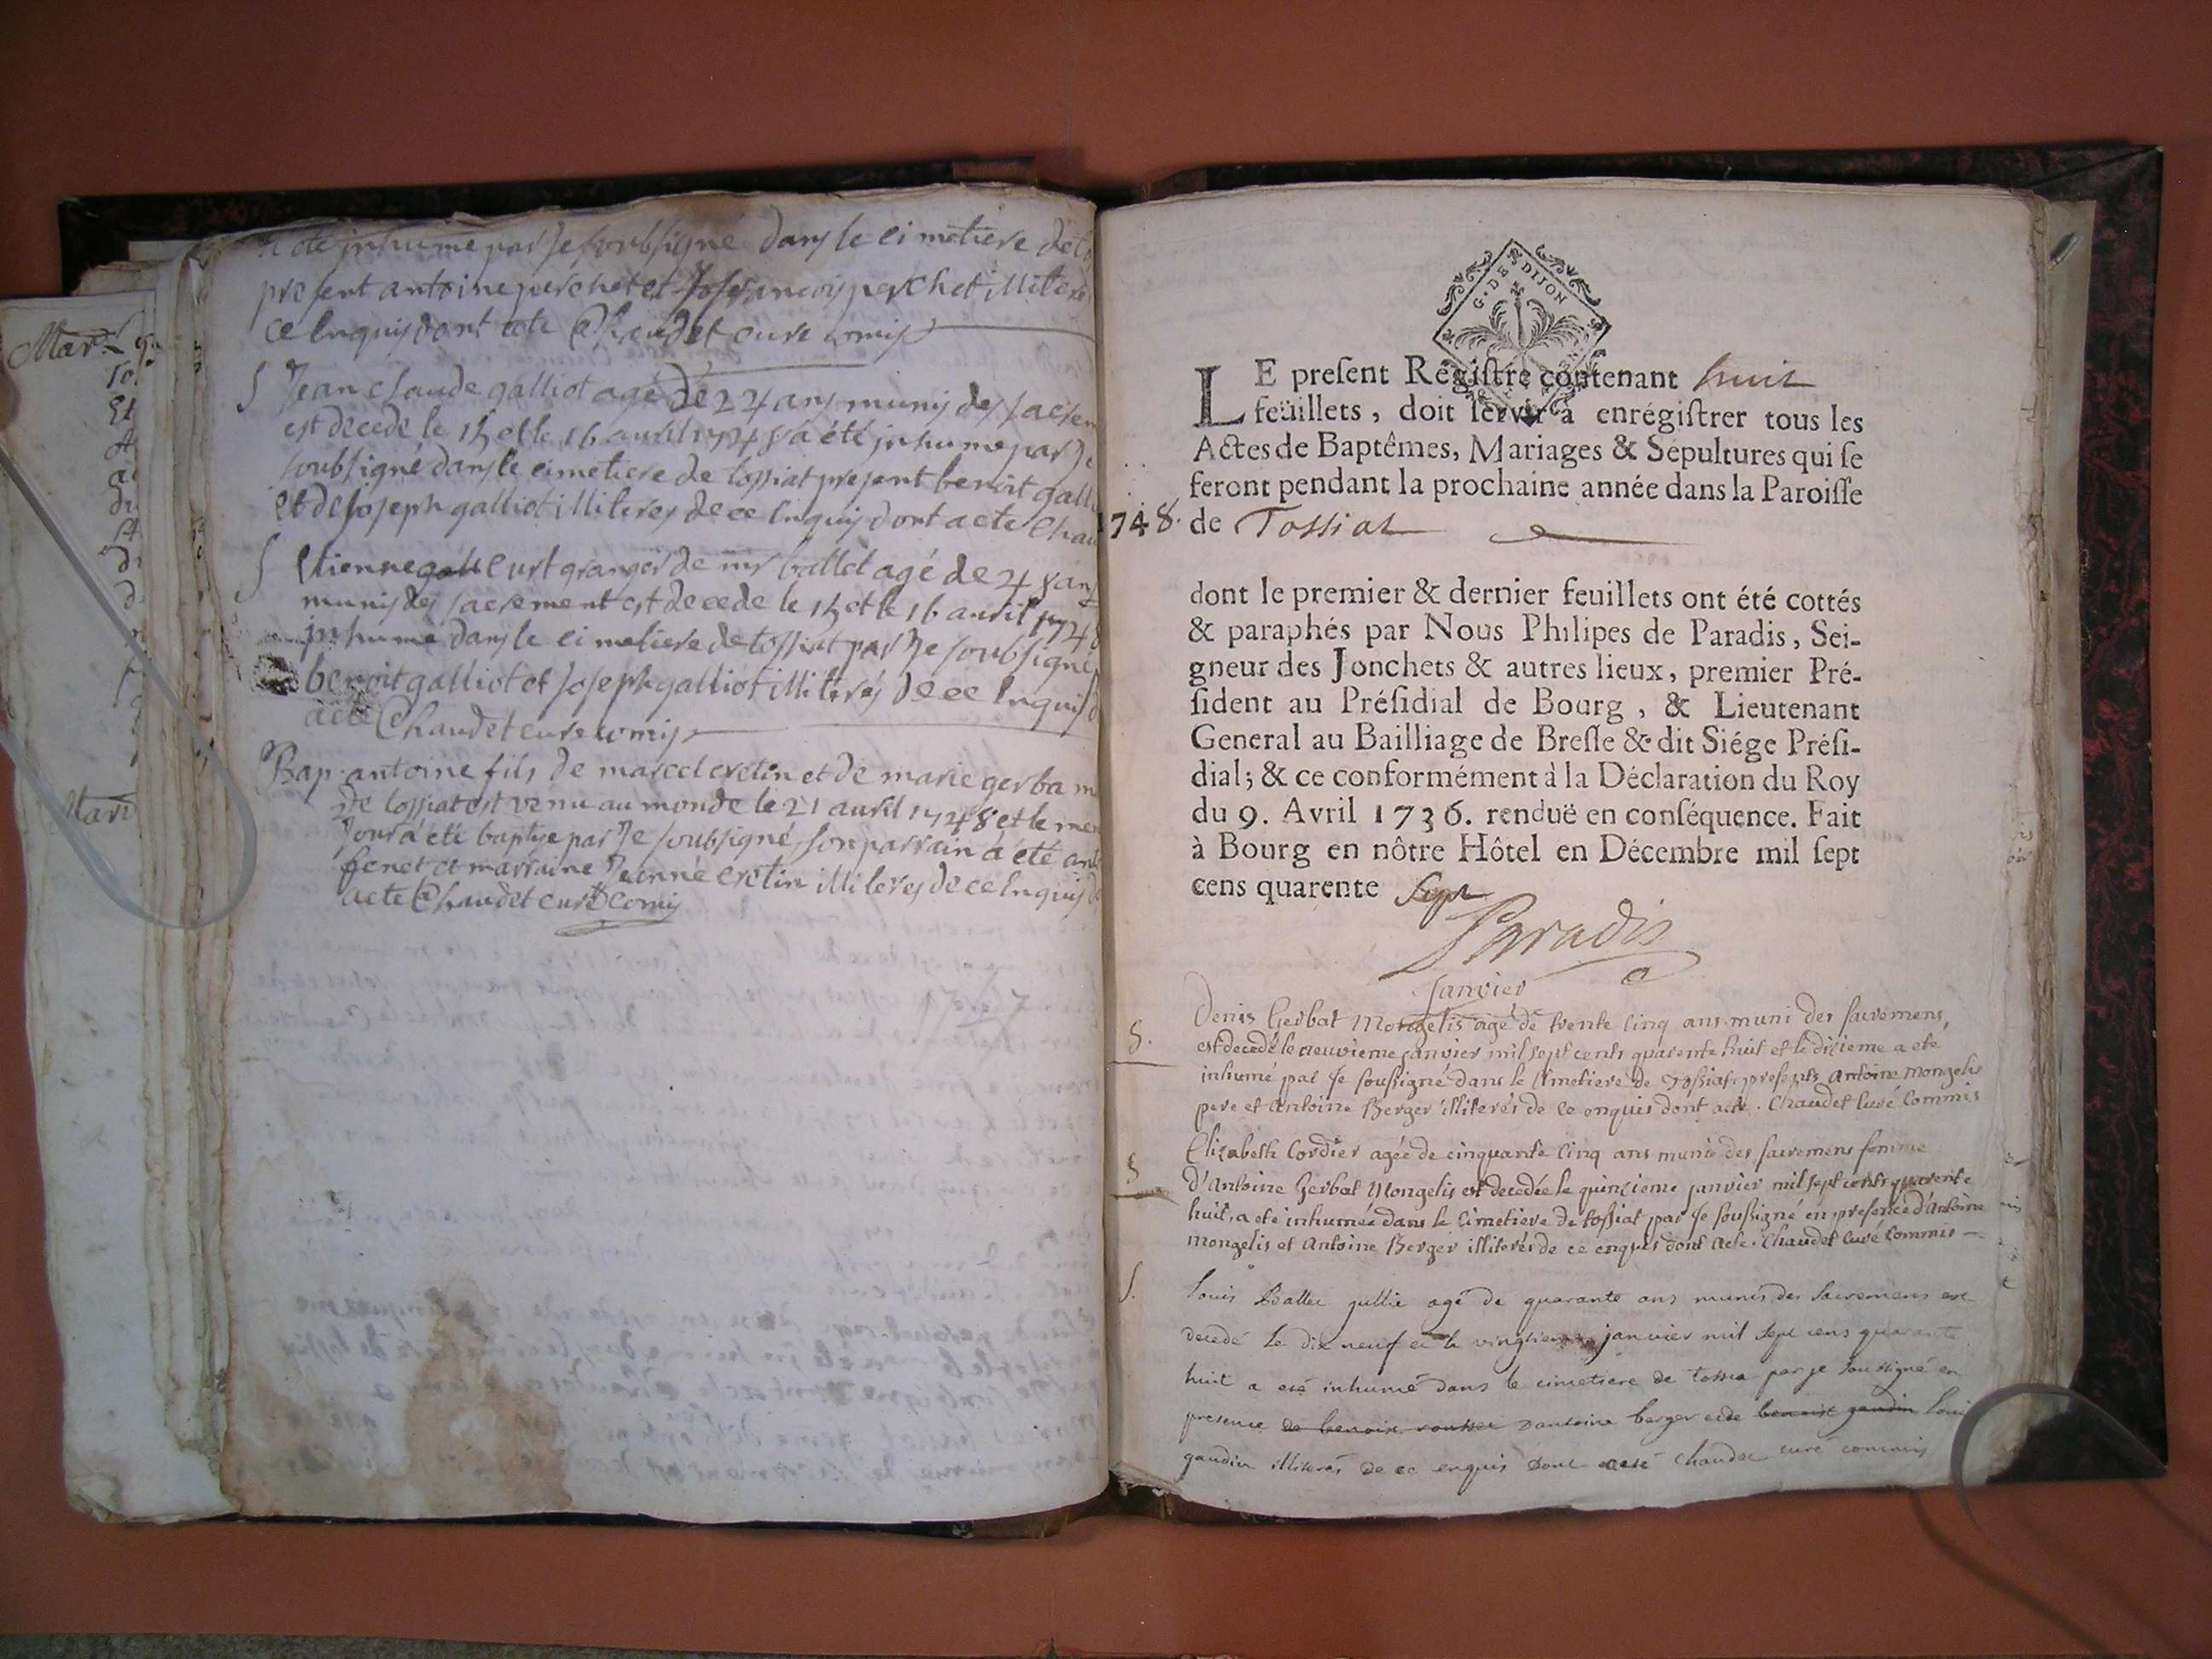 a été inhumé par Je soubsigné dans le cimetiere de
present antoine perchet et françois perchet illiteré
ce Enquis dont acte Chaudet curé comis
S Jean claude galliot agé de 24 ans munis des sacrem
est decede le 15 et le 16 avril 1748 a été inhumé par Je
soubsigné dans le cimetiere de tossiat present benoit galli
et de Joseph galliot illiteres de ce Enquis dont acte Chau
S Etienne curt granger de mr ballet agé de 48 ans
munis des sacrement est decede le 15 et le 16 avril 1748
inhumé dans le cimetiere de tossiat par Je soubsigné
benoit galliot et Joseph galliot illiterés de ce Enquis
acte Chaudet cure comis
Bap. antoine fils de marcel cretin et de marie gerba m
de tossiat est venu au monde le 21 avril 1748 et le mem
Jour a été baptise par Je soubsigné son parrain a été ant
fenet et marraine Jeanne cretin illiteres de ce Enquis d
acte Chaudet curé comis
Mar.
Mari
G. DE DIJON
LE preſent Régiſtre contenant huit
feüillets, doit ſervir à enrégiſtrer tous les
Actes de Baptêmes, Mariages & Sépultures qui ſe
feront pendant la prochaine année dans la Paroiſſe
1748. de Tossiat
dont le premier & dernier feuillets ont été cottés
& paraphés par Nous Philipes de Paradis, Sei-
gneur des Jonchets & autres lieux, premier Pré-
ſident au Préſidial de Bourg, & Lieutenant
General au Bailliage de Breſſe & dit Siége Préſi-
dial; & ce conformément à la Déclaration du Roy
du 9. Avril 1736. renduë en conſéquence. Fait
à Bourg en nôtre Hôtel en Décembre mil ſept
cens quarente Sept
Paradis
Janvier
S. Denis Gerbat Mongelis agé de trente cinq ans muni des sacremens,
est decedé le neuvieme janvier mil sept cents quarente huit et le dixieme a eté
inhumé par Je soussigné dans le cimetiere de Tossiat presents Antoine mongelis
pere et Antoine Berger illiterés de ce enquis dont acte. Chaudet curé Commis
S Elizabeth Cordier agée de cinquante cinq ans munie des sacremens femme
d'Antoine Gerbat Mongelis est decedée le quinzieme janvier mil sept cents quarente
huit, a eté inhumée dans le cimetiere de tossiat par Je soussigné en presence d'Antoine
mongelis et Antoine Berger illiterés de ce enquis dont acte. Chaudet curé Commis
S. Louis Ballet jullie agé de quarante ans munis des sacremens est
decedé le dix neuf et le vingtieme janvier mil sept cens quarante
huit a eté inhumé dans le cimetiere de tossia par je soussigné en
presence de benoix rousset dantoine berger et de benoist gaudin loui
gaudin illiterés de ce enquis dont acte chaudet curé commis